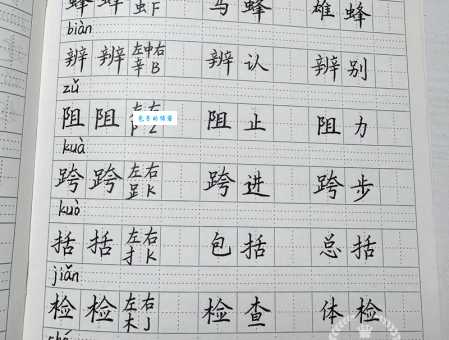 蜂 蜂 虫F 马蜂 雄蜂
biàn
辨 辨 左中右 辛B 辨认 辨别
zǔ
阻 阻 左右 阻止 阻力
kuà
跨 跨 左右 𧾷K 跨进 跨步
kuò
括 括 左右 扌K 包括 总括
jiǎn
检 检 左右 木J 检查 体检